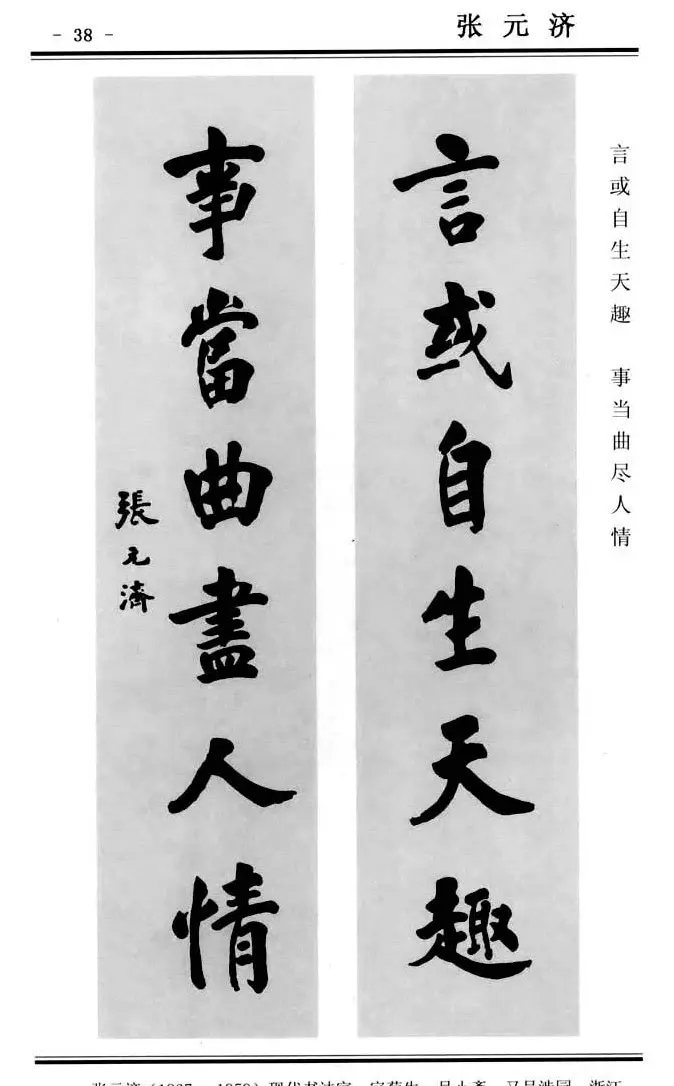 - 38 -
张元济
言或自生天趣 事当曲尽人情
言或自生天趣
事當曲盡人情
張元濟